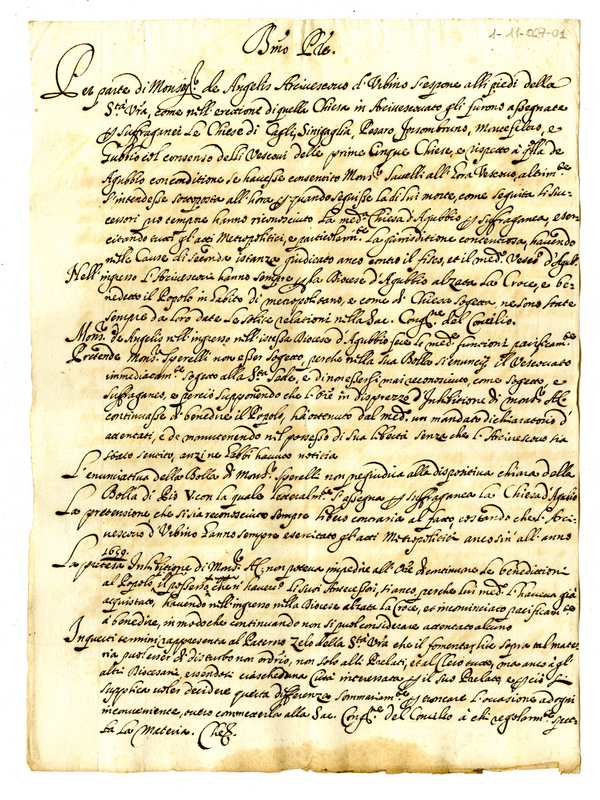 1-11-027-01
Bmo Pre.
Per parte di Monsr. de Angelis Arcivescovo d'Urbino s'espone alli piedi della
Sta. Vra, come nell'erectione di quella Chiesa in Arcivescovato gli furono assegnate
p suffraganee Le Chiese di Cagli, Sinigaglia, Pesaro, Fossombruno, Montefeltro, e
Gubbio col consenso delli Vescovi delle prime Cinque Chiese, e rispetto à qlla de
Agubbio con conditione se havesse consentito Monsr. Savelli all'hora Vescovo, altrimte
s'intendesse sottoposta all'hora p quando seguisse la di lui morte, come seguita li suc-
cessori pro tempore hanno riconosciuto La meda. Chiesa d'Agubbio p suffraganea, eser-
citando tutti gl'atti Metropolitici, e particolarmte. La giurisditione contentiosa, havendo
nelle Cause di seconda istanza giudicato anco contro il fisco, et il medo. Vescovo d'Agubo.
Nell'ingresso L'Arcivescovi hanno sempre p la Diocese d'Agubbio alzata La Croce, e be-
nedetto il Popolo in habito di metropolitano, e come di Chiesa sogetta ne sono state
sempre da loro date Le solite relationi nella Sac. Congne. del Concilio.
Monsr. de Angelis nell'ingresso nell'istessa Diocese d'Agubbio fece le mede. funtioni pacificamte.
Pretende Monsr. Sperelli non esser sogetto, perche nella sua Bolla si enuncij il Vescovato
immediatamte. sogetto alla Sta. Sede, e di non essersi mai reconosciuto, come sogetto, e
suffraganeo, e perciò supponendo che l'Ore in dispreggio d'Inhibitione di Monsr. AC.
continuasse di benedire il Popolo, hà ottenuto dal medo. un mandato dichiaratorio d'
attentati, e de manutenendo nel possesso di sua libertà senza che L'Arcivescovo sia
stato sentito, anzi ne habbi havuto notitia
L'enunciativa della Bolla di Monsr. Sperelli non pregiudica alla dispositiva chiara della
Bolla di Pio V. con la quale letteralmte. s'assegna p suffraganea La Chiesa d'Agubbio
La pretensione che si sia reconosciuto sempre libero contraria al fatto, costando che L'Arci-
vescovo d'Urbino hanno sempre esercitato gl'atti Metropolitici anco sin all'anno
1639.
La pretesa Inhibitione di Monsr. AC. non poteva impedire all'Ore di continuare le benedittioni
al Popolo, il possesso, che n'havevano li suoi Antecessori, si anco, perche Lui medo. l'haveva già
acquistato, havendo nell'ingresso nella Diocese alzata la Croce, et incominciato pacificamte.
à benedire, in modo che continuando non si può considerare attentato alcuno
In questi termini, rappresenta al Paterno Zelo della Sta. Vra che il fomentar lite sopra tal mate-
ria può esser di disturbo non ordrio, non solo alli Prelati, et al Clero tutto, ma anco à gl'
altri Diocesani, essendovi ciascheduna Città interessata p il suo Prelato, e perciò La
supplica voler decidere questa differenza sommariamte. p troncare l'occasione ad ogni
inconveniente, overo commetterla alla Sac. Congne. del Concilio à chi regolarmte. spet-
ta La Materia. Che &.